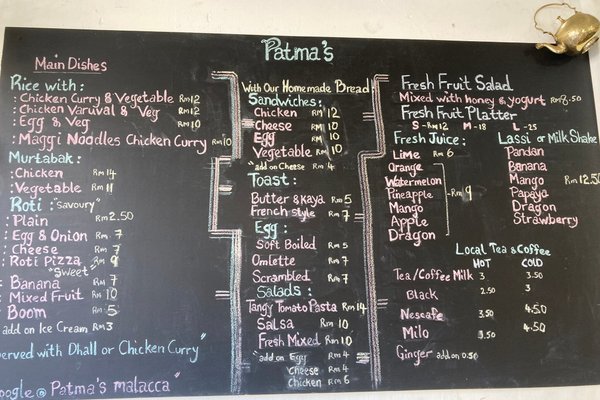 Patma's
Main Dishes
Rice with:
: Chicken Curry & Vegetable RM 12
: Chicken Varuval & Veg RM 12
: Egg & Veg RM 10
: Maggi Noodles Chicken Curry RM 10
Murtabak:
: Chicken RM 14
: Vegetable RM 11
Roti: "Savoury"
: Plain RM 2.50
: Egg & Onion RM 7
: Cheese RM 7
: Roti Pizza RM 9
"Sweet"
: Banana RM 7
: Mixed Fruit RM 10
: Boom RM 5
add on Ice Cream RM 3
served with Dhall or Chicken Curry"
google @ Patma's malacca"
With Our Homemade Bread
Sandwiches:
Chicken RM 12
Cheese RM 10
Egg RM 10
Vegetable RM 10
"add on Cheese RM 4
Toast:
Butter & Kaya RM 5
French style RM 7
Egg:
Soft Boiled RM 5
Omlette RM 7
Scrambled RM 7
Salads:
Tangy Tomato Pasta RM 14
Salsa RM 10
Fresh Mixed RM 10
"add on Egg RM 4
Cheese RM 4
Chicken RM 6
Fresh Fruit Salad
Mixed with honey & yogurt RM 8.50
Fresh Fruit Platter
S - RM 12 M - 18 L - 25
Fresh Juice:
Lime RM 6
Orange
Watermelon
Pineapple RM 9
Mango
Apple
Dragon
Lassi or Milk Shake
Pandan
Banana
Mango RM 12.50
Papaya
Dragon
Strawberry
Local Tea & Coffee
HOT COLD
Tea/Coffee Milk 3 3.50
Black 2.50 3
Nescafe 3.50 4.50
Milo 3.50 4.50
Ginger add on 0.50